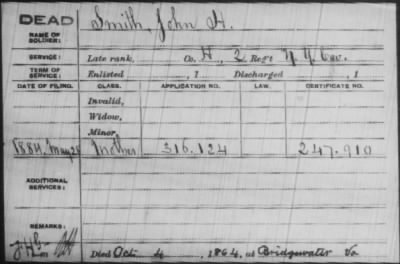 DEAD
NAME OF SOLDIER: Smith, John H.
SERVICE: Late rank, Co. H, 2 Reg't N.Y. Cav.
TERM OF SERVICE: Enlisted , 1 Discharged , 1
DATE OF FILING. CLASS. APPLICATION NO. LAW. CERTIFICATE NO.
Invalid,
Widow,
Minor,
1884, May 28 Mother 316.124 247.910
ADDITIONAL SERVICES:
REMARKS:
Died Oct. 4, 1864, at Bridgewater Va